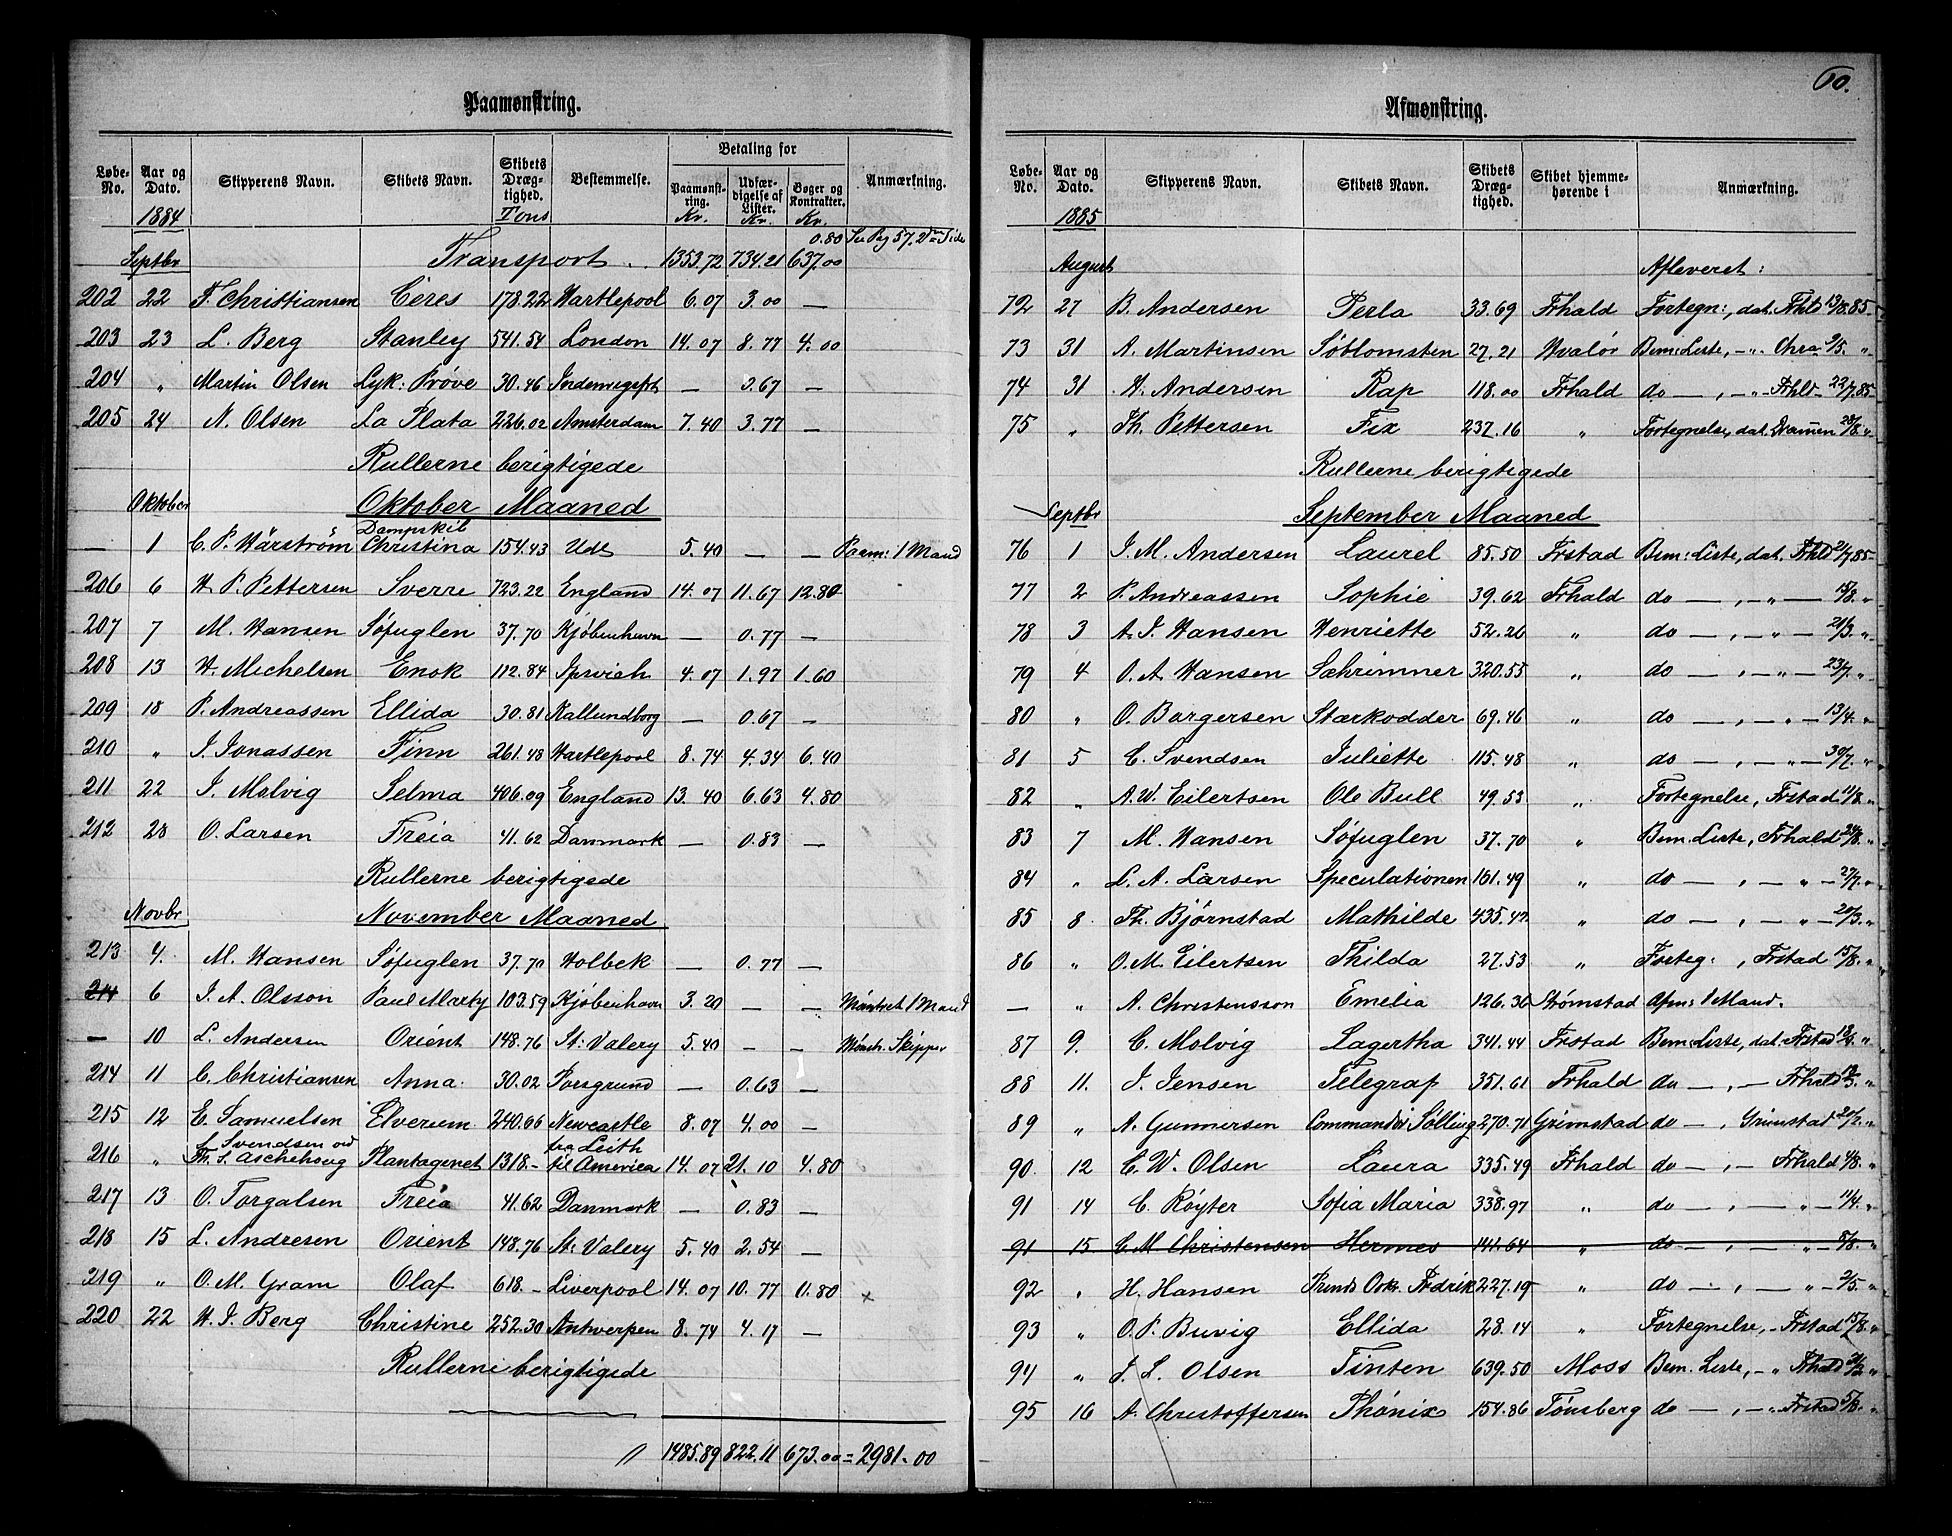 Paamønstring.
Løbe-No. Aar og Dato. Skipperens Navn. Skibets Navn. Skibets Dræg-tighed. Bestemmelse. Betaling for Anmærkning.
Paamønst-ring. Udfær-digelse af Lister. Bøger og Kontrakter.
1884 Tons Kr. Kr. Kr.
0.80 Se Pag 57, 2den Side
Septbr Transport 1353.72 734.21 637.00
202 22 F. Christiansen Ceres 178.22 Hartlepool 6.07 3.00 —
203 23 L. Berg Stanley 541.54 London 14.07 8.77 4.00
204 " Martin Olsen Lyk: Prøve 30.46 Indenrigsfrt — 0.67 —
205 24 N. Olsen La Plata 226.02 Amsterdam 7.40 3.77 —
Rullerne berigtigede
Oktober Oktober Maaned
— 1 C. P. Wärström Dampskib Christina 154.43 Udl 5.40 — — Paam: 1 Mand
206 6 H. P. Pettersen Sverre 723.22 England 14.07 11.67 12.80
207 7 M. Hansen Søfuglen 37.70 Kjøbenhavn — 0.77 —
208 13 H. Michelsen Enok 112.84 Ipswich 4.07 1.97 1.60
209 18 P. Andreassen Ellida 30.81 Kallundborg — 0.67 —
210 " J. Jonassen Finn 261.48 Hartlepool 8.74 4.34 6.40
211 22 J. Molvig Selma 406.09 England 13.40 6.63 4.80
212 28 O. Larsen Freia 41.62 Danmark — 0.83 —
Rullerne berigtigede
Novbr November Maaned
213 4. M. Hansen Søfuglen 37.70 Holbek — 0.77 —
214 6 J. A. Olsson Paul Marky 103.59 Kjøbenhavn 3.20 — — Mønstret 1 Mand
— 10 L. Andersen Orient 148.76 St: Valery 5.40 — — Mønstr. Skipper
214 11 C. Christiansen Anna 30.02 Porsgrund — 0.63 —
215 12 E. Samuelsen Elverum 240.66 Newcastle 8.07 4.00 —
216 " C. Svendsen ved Th. S. Aschehoug Plantagenet 1318.- fra Leith til America 14.07 21.10 4.80
217 13 O. Torgalsen Freia 41.62 Danmark — 0.83 —
218 15 L. Andresen Orient 148.76 St: Valery 5.40 2.54 —
219 " O. M. Gram Olaf 618.- Liverpool 14.07 10.77 0.80 x
220 22 H. J. Berg Christine 252.30 Antwerpen 8.74 4.17 —
Rullerne berigtigede
1485.89 822.11 673.00 = 2981.00
60.
Afmønstring.
Løbe-No. Aar og Dato. Skipperens Navn. Skibets Navn. Skibets Dræg-tighed. Skibet hjemme-hørende i Anmærkning.
1885
August Afleveret:
72 27 B. Andersen Perla 33.69 Frhald Fortegn:, dat. Fhld 13/8.85.
73 31 A. Martinsen Søblomsten 27.21 Hvalør Bem: Liste, -"- Chra 9/5. "
74 31 H. Andersen Rap 118.00 Frhald do —, -"- Frhld 22/7.85
75 " Th. Pettersen Fix 237.16 " Fortegnelse, dat. Dramen 28/8. "
Rullerne berigtigede
Septbr September Maaned
76 1 J. M. Andersen Laurel 85.50 Frstad Bem: Liste, dat. Frhld 21/7.85
77 2 P. Andreassen Sophie 39.62 Frhald do —, — " — 18/8. "
78 3 A. J. Hansen Henriette 52.26 " do —, — " — 21/3. "
79 4 O. A. Hansen Sæhrimner 320.55 " do —, — " — 23/7. "
80 " O. Borgersen Stærkodder 69.46 " do —, — " — 13/4. "
81 5 C. Svendsen Juliette 115.48 " do —, — " — 30/7. "
82 " A. W. Eilertsen Ole Bull 49.53 " Fortegnelse, Frstad 11/8. "
83 7 M. Hansen Søfuglen 37.70 " Bem. Liste, Frhald 24/8. "
84 " L. A. Larsen Speculationen 101.49 " do —, — " — 27/7. "
85 8 Th. Bjørnstad Mathilde 435.47 " do —, — " — 20/3. "
86 " O. M. Eilertsen Thilda 27.53 " Forteg:, Frstad 15/8. "
— " A. Christensson Emelia 126.36 Strømstad Afm: 1 Mand.
87 9. C. Molvig Lagertha 341.44 Frstad Bem: Liste, dat. Frstad "
88 11. J. Jensen Telegraf 351.61 Frhald do —, — Frhald "
89 " A. Gunnersen Commandør Sølling 270.71 Grimstad do —, Grimstad 20/2. "
90 12 C. W. Olsen Laura 335.49 Frhald do —, — Frhald 4/8. "
91 14 C. Røyter Sofia Maria 338.97 " do —, — " — 11/4. "
91 15 C. M. Christensen Hermes 141.64 " do —, — " — 8/8. "
92 " H. Hansen Prinds Osk. Fredrik 227.19 " do —, — " 2/5. "
93 " O. P. Buvig Ellida 28.14 " Fortegnelse, - Frstad 15/8. "
94 " J. L. Olsen Tinten 639.50 Moss Bem. Liste, -" Frhald "
95 16 A. Christoffersen Phønix 154.86 Tønsberg do —, — " Frstad 5/8. "